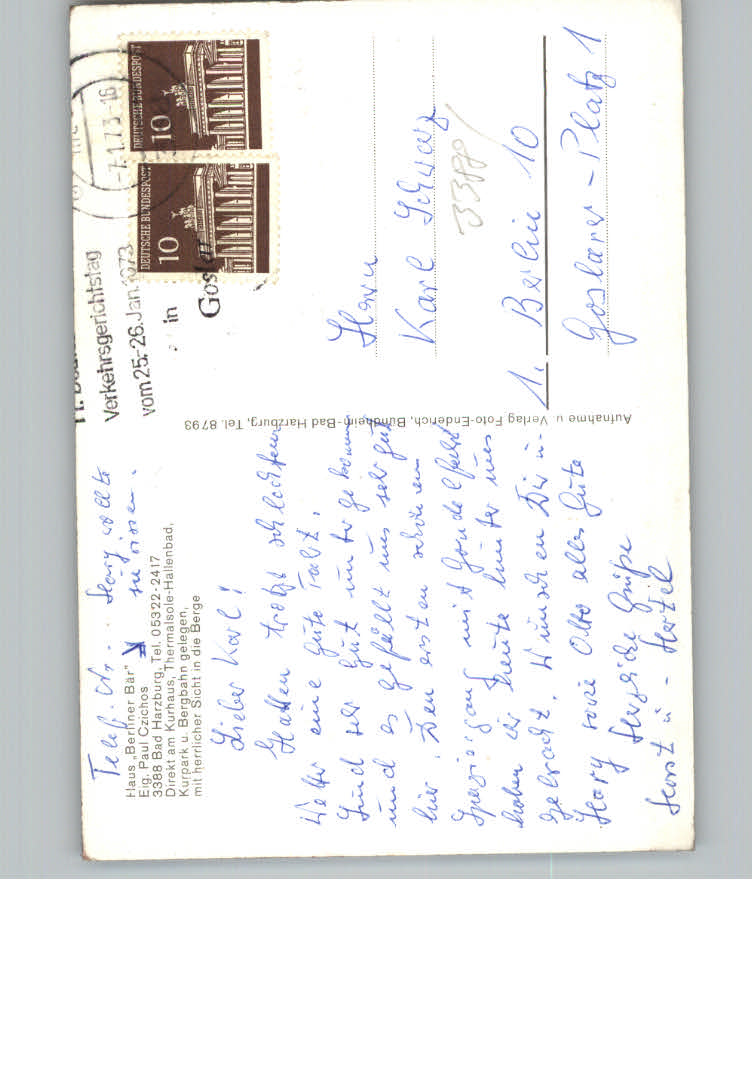 Telef. Nr. Harry wollte
zu wissen.
Haus „Berliner Bär"
Eig. Paul Czichos
3388 Bad Harzburg, Tel. 05322-2417
Direkt am Kurhaus, Thermalsole-Hallenbad,
Kurpark u. Bergbahn gelegen,
mit herrlicher Sicht in die Berge
Lieber Karl!
Hatten trotz schlechtem
Wetter eine gute Fahrt.
Sind sehr gut untergekommen
und es gefällt uns sehr gut
hier. Den ersten schönen
Spaziergang mit Gondelfahrt
haben wir heute hinter uns
gebracht. Wünschen Dir u.
Harry sowie Otto alles Gute
Herzliche Grüße
Horst u.
Aufnahme u. Verlag Foto-Enderich, Bündheim-Bad Harzburg, Tel. 8793
Verkehrsgerichtstag
vom 25.-26. Jan. 1973
in
Goslar
-7.1.73-16
DEUTSCHE BUNDESPOST
10
DEUTSCHE BUNDESPOST
10
Herrn
Karl Schwarz
3388
1. Berlin 10
Goslarer-Platz 1